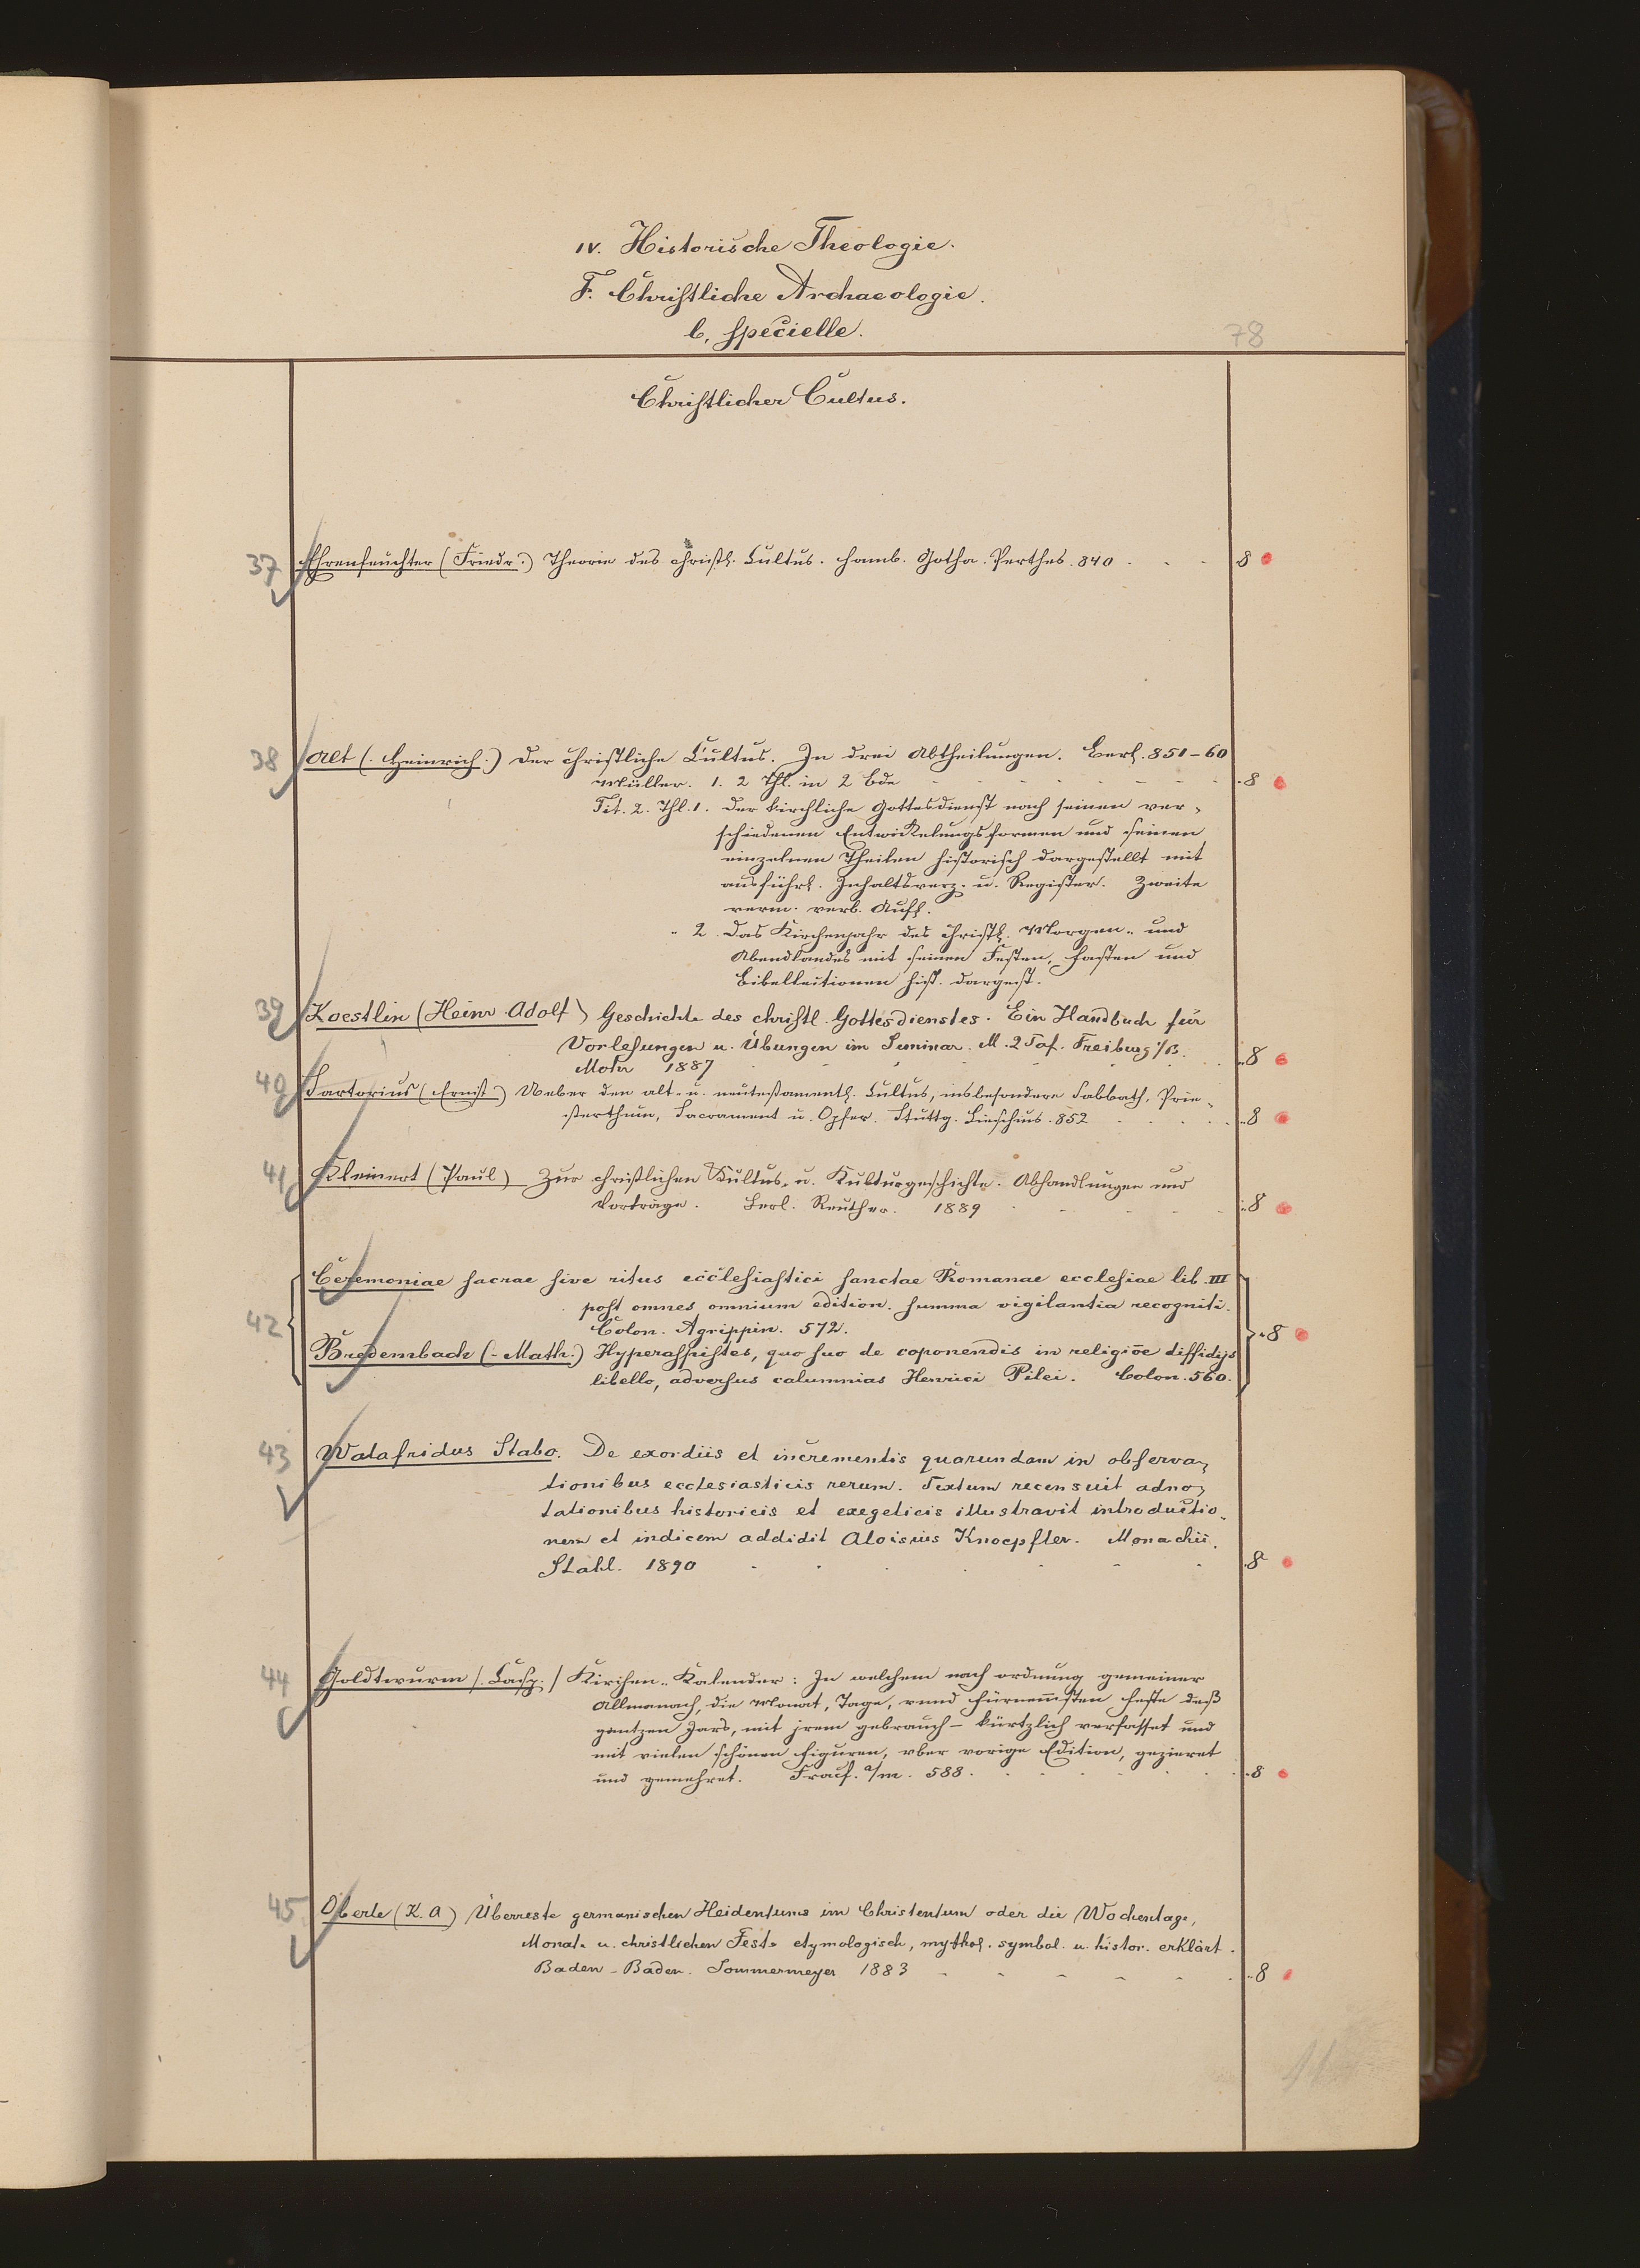 IV. Historische Theologie.
F. Christliche Archaeologie.
b, specielle.
78
Christlicher Cultus.
37 Ehrenfeuchter (Friedr.) Theorie des christl. Cultus. Hamb. Gotha. Perthes. 840 8
38 Alt (Heinrich.) Der christliche Cultus. In drei Abtheilungen. Berl. 851-60
Müller. 1. 2 Thl. in 2 Bde 8
Tit. 2. Thl. 1. Der kirchliche Gottesdienst nach seinen ver-
schiedenen Entwickelungsformen und seinen
einzelnen Theilen historisch dargestellt mit
ausführl. Inhaltsverz. u. Register. Zweite
verm. verb. Aufl.
" 2. Das Kirchenjahr des christl. Morgen- und
Abendlandes mit seinen Festen, Fasten und
Bibellectionen hist. dargest.
39 Koestlin (Heinr. Adolf) Geschichte des christl. Gottesdienstes. Ein Handbuch für
Vorlesungen u. Übungen im Seminar. M. 2 Taf. Freiburg i/B.
Mohr 1887 8
40 Sartorius (Ernst.) Ueber den alt- u. neutestamentl. Cultus, insbesondere Sabbath, Prie-
sterthum, Sacrament u. Opfer. Stuttg. Liesching. 852 8
41 Kleinert (Paul) Zur christlichen Kultus- u. Kulturgeschichte. Abhandlungen und
Vorträge. Berl. Reuther. 1889 8
Ceremoniae sacrae sive ritus ecclesiastici sanctae Romanae ecclesiae lib. III
post omnes omnium edition. summa vigilantia recogniti.
42 Colon. Agrippin. 572. 8
Bredembach (Math.) Hyperaspistes, quo suo de coponendis in religiōe dissidijs
libello, adversus calumnias Henrici Pilei. Colon. 560.
43 Walafridus Stabo. De exordiis et incrementis quarundam in observa-
tionibus ecclesiasticis rerum. Textum recensuit adno-
tationibus historicis et exegeticis illustravit introductio-
nem et indicem addidit Aloisius Knoepfler. Monachii.
Stahl. 1890 8
44 Goldtwurm /. Casp. / Kirchen-Kalender: In welchem nach ordnung gemeiner
Allmanach, die Monat, Tage, vnnd fürnemsten Feste deß
gantzen Jars, mit jrem gebrauch - kürtzlich verfasset und
mit vielen schönen figuren, vber vorige Edition, gezieret
und gemehret. Francf. a/m. 588. 8
45 Oberle (K. A) Überreste germanischen Heidentums im Christentum oder die Wochentage,
Monate u. christlichen Feste etymologisch, mythol. symbol. u. histor. erklärt.
Baden-Baden. Sommermeyer 1883 8